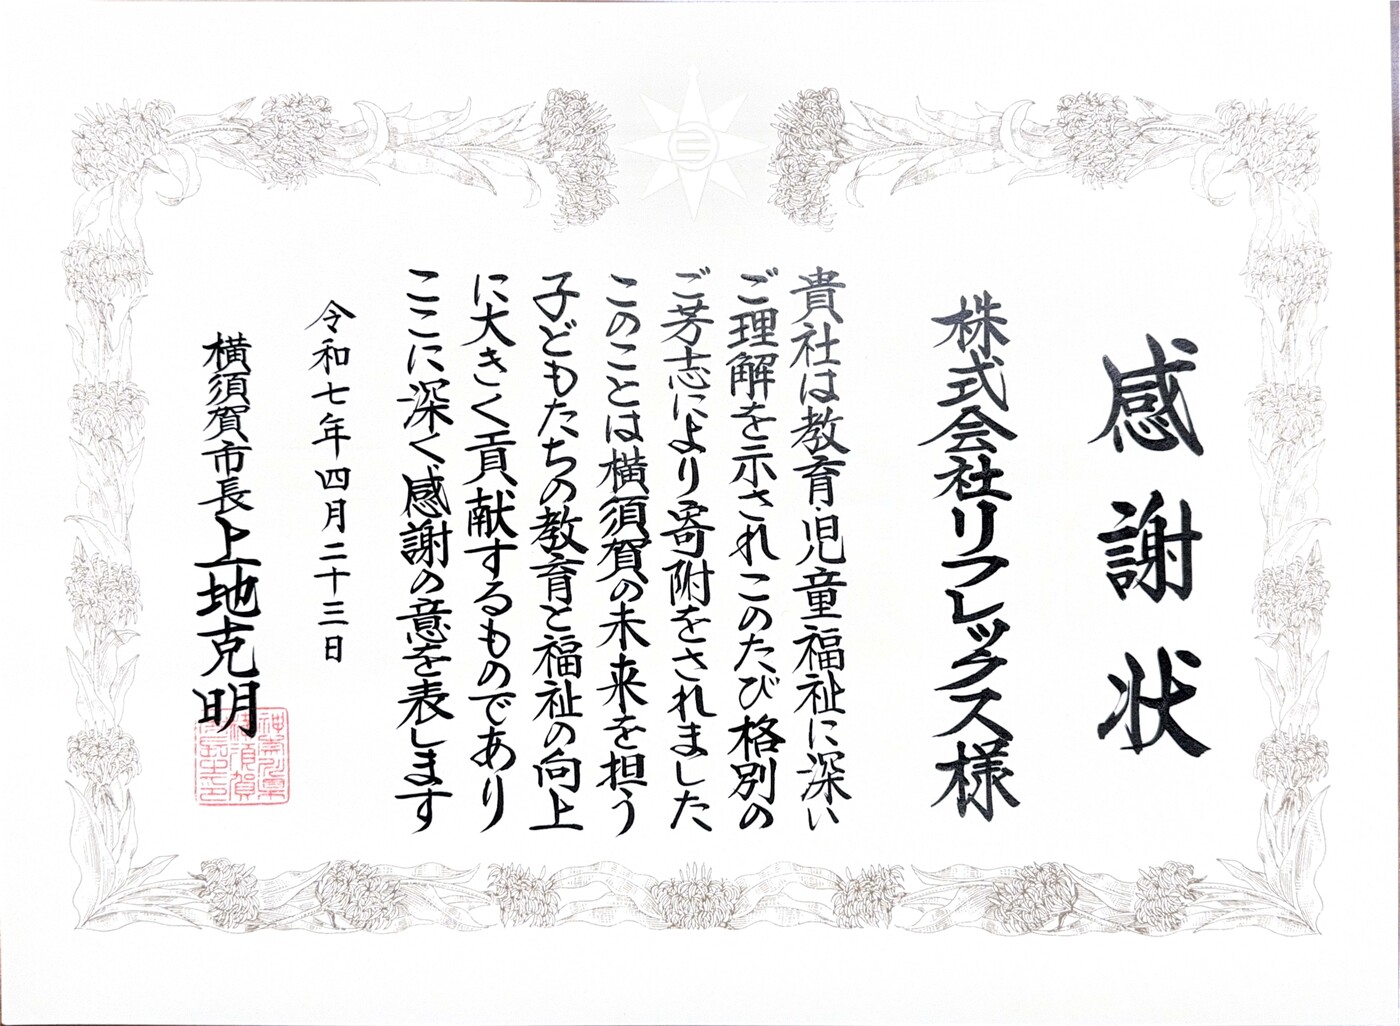 感謝状
株式会社リフレックス様
貴社は教育・児童福祉に深い
ご理解を示されこのたび格別の
ご芳志により寄附をされました
このことは横須賀の未来を担う
子どもたちの教育と福祉の向上
に大きく貢献するものであり
ここに深く感謝の意を表します
令和七年四月二十三日
横須賀市長上地克明